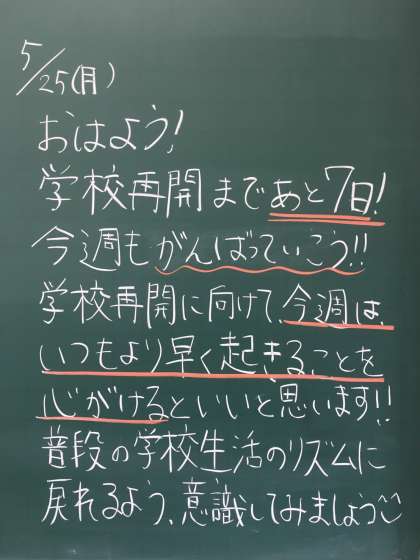 5/25(月)
おはよう!
学校再開まであと7日!
今週もがんばっていこう!!
学校再開に向けて、今週は、
いつもより早く起きることを
心がけるといいと思います!!
普段の学校生活のリズムに
戻れるよう、意識してみましょう